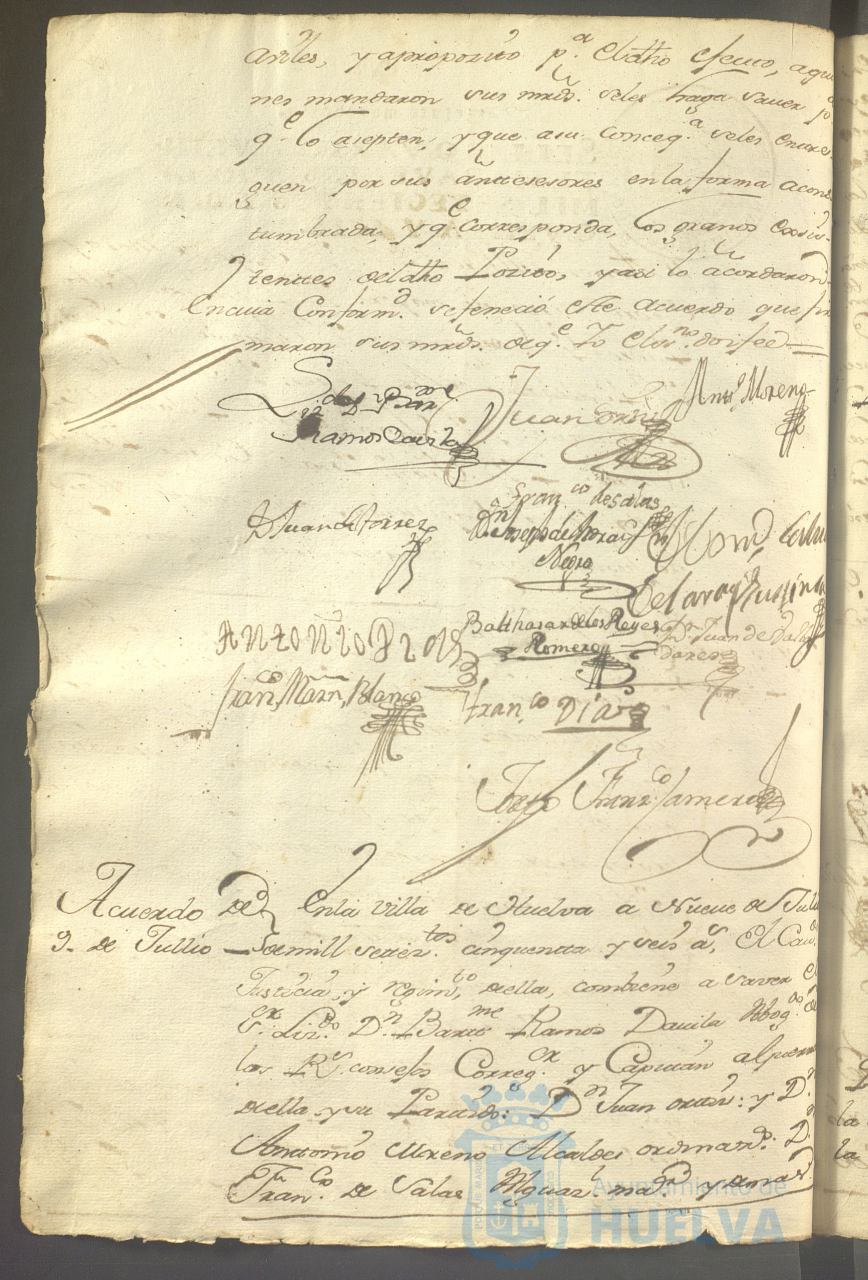 aviles, y aproposito p.ª el dho efecto, aquie
nes mandaron sus mrds. seles haga saver p.ª
q.e lo asepten, y que asu conseq.ª seles entre
guen por sus antesesores en la forma acos
tumbrada, y q.e corresponda, los granos exsis-
tentes del dho Posito, y asi lo acordaron
En cuia Conform.d se feneció este acuerdo que fir
maron sus mrds. de q.e Yo el es.no doi fee=
Liz.do D. Bar.me
Ramos Davila
Juan Ortiz
Ant.o Moreno
D. Juan de Torres
Fran.co de Salas
D.n Joseph de
Negro
Antonio
Balthasar de los Reyes
Romero
D.n Juan de
Fran.co Marn. Blanco
Fran.co Diaz
Fran.co Camero
Acuerdo de
9. de Jullio
En la Villa de Huelva a Nueve de Jul
de mill setez.tos cinquenta y seis a.s, El Cav.
Justicia, y regim.to, de ella, combiene a saver el
S.or Liz.do D.n Bart.me Ramos Davila Abog.do de
los R.s consejos Correg.or y Capitan a guerra
de ella y su Partido: D.n Juan ortiz: y D.n
Antonio Moreno Alcaldes ordinar.s: D.n
Fran.co de Salas Alguaz.l ma.or y demas
Ayuntamiento de
HUELVA